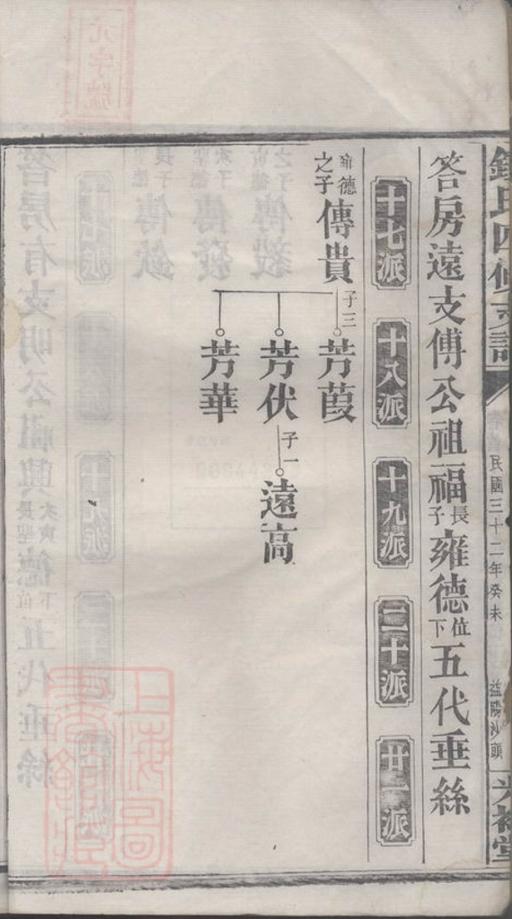 元字號
氏四修支譜
民國三十二年癸未
益陽沙頭
光裕堂
答房遠支傅公祖福長子雍德位下五代垂絲
十七派 十八派 十九派 二十派 廿一派
德之子傳貴子三芳葭
芳伏子一遠高
芳華
上海圖書館藏